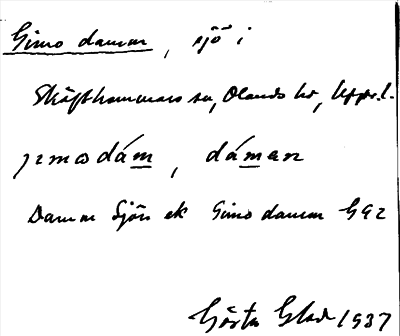 Gimo damm, sjö i
Skäfthammars sn, Olands hd, Upps. l.
jɪmodám, dáman
Damm Sjön ek Gimo damm G42
Gösta Glad 1937